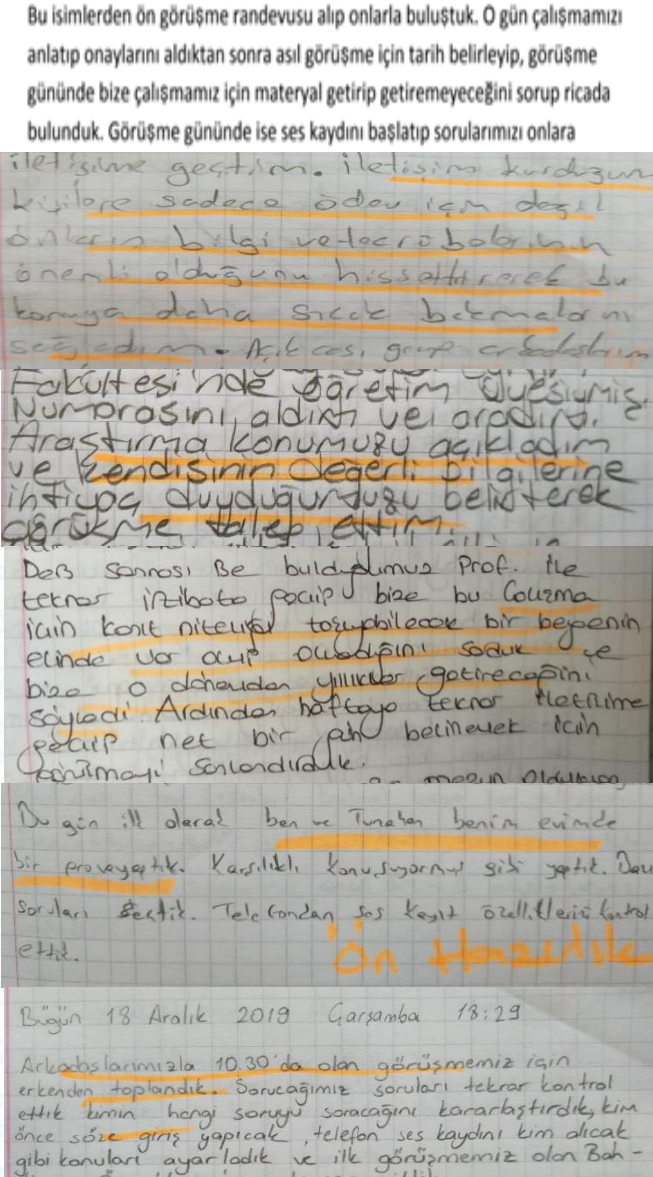 Bu isimlerden ön görüşme randevusu alıp onlarla buluştuk. O gün çalışmamızı
anlatıp onaylarını aldıktan sonra asıl görüşme için tarih belirleyip, görüşme
gününde bize çalışmamız için materyal getirip getiremeyeceğini sorup ricada
bulunduk. Görüşme gününde ise ses kaydını başlatıp sorularımızı onlara
iletişime geçtim. İletişim kurduğum
kişilere sadece ödev için değil
onların bilgi ve tecrübelerinin
önemli olduğunu hissettirerek bu
konuya daha sıcak bakmalarını
sağladım. Açıkcası, grup arkadaşlarım
Fakültesi'nde öğretim üyesiymiş.
Numarasını aldım ve aradım.
Araştırma konumuzu açıkladım
ve kendisinin değerli bilgilerine
ihtiyaç duyduğumuzu belirterek
görüşme talep ettim.
Ders sonrası Be bulduğumuz Prof. ile
tekrar irtibata geçip bize bu Çalışma
için kanıt niteliği taşıyabilecek bir belgenin
elinde var olup olmadığını sorduk ve
bize o dönemden yıllıklar getireceğini
söyledi. Ardından haftaya tekrar iletişime
geçip net bir gün belirlemek için
görüşmeyi sonlandırdık.
Bu gün ilk olarak ben ve Tunahan benim evimde
bir prova yaptık. Karşılıklı konuşuyormuş gibi yaptık.
soruları seçtik. Telefondan ses kayıt özelliklerini kontrol
ettik.
Ön Hazırlık
Bugün 18 Aralık 2019 Çarşamba 18:29
Arkadaşlarımızla 10.30'da olan görüşmemiz için
erkenden toplandık. Sorucağımız soruları tekrar kontrol
ettik kimin hangi soruyu soracağını kararlaştırdık, kim
önce söze giriş yapıcak, telefon ses kaydını kim alıcak
gibi konuları ayarladık ve ilk görüşmemiz olan Bah-